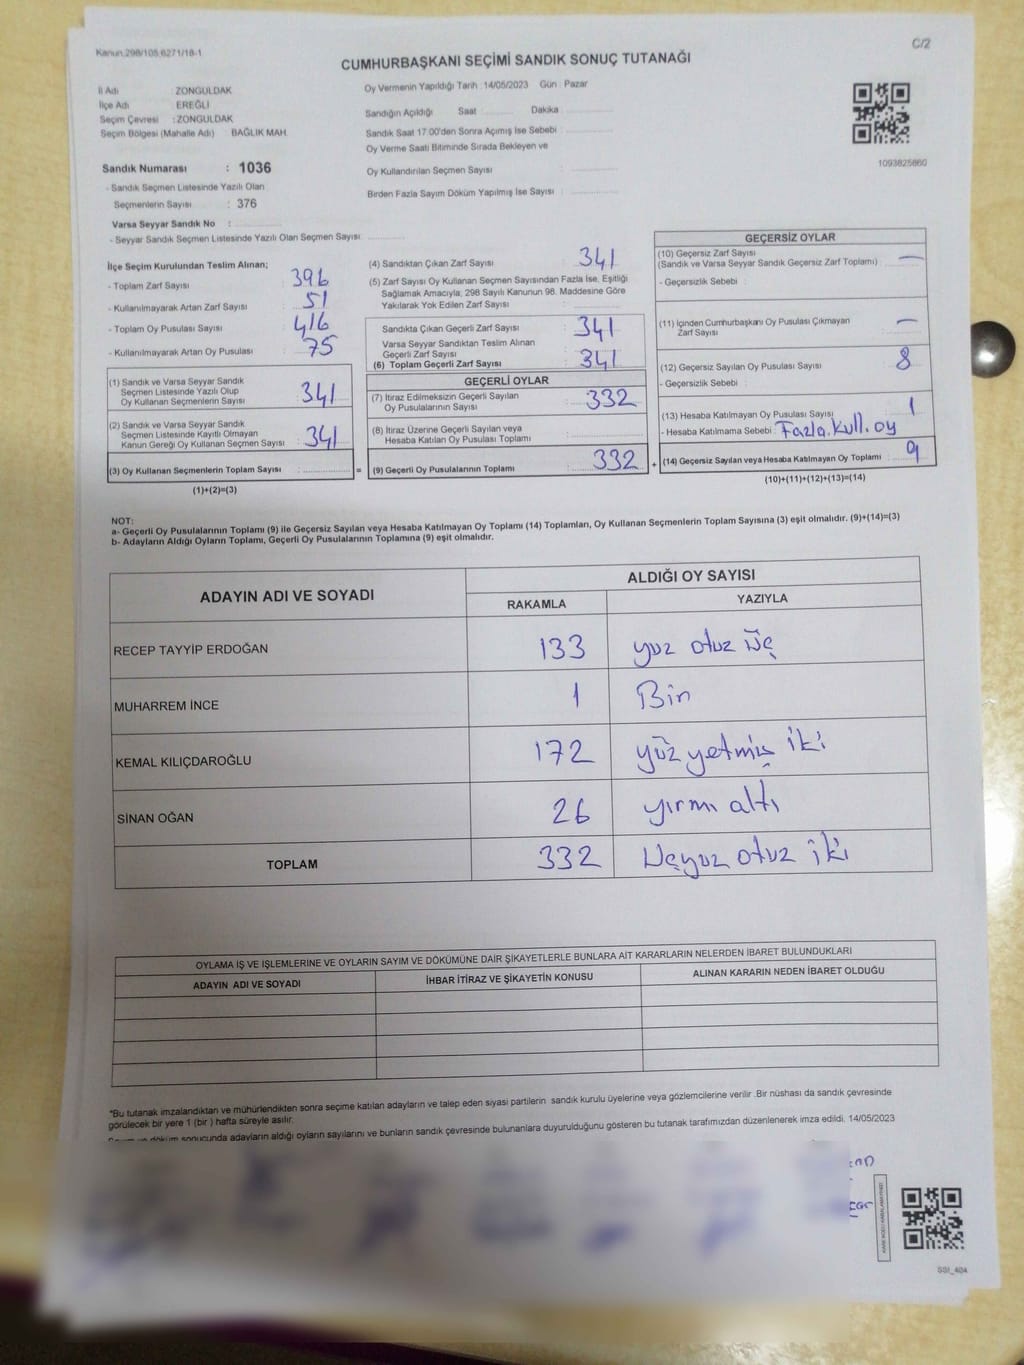 Kanun.298/105.6271/18-1
C/2
CUMHURBAŞKANI SEÇİMİ SANDIK SONUÇ TUTANAĞI
İl Adı ZONGULDAK
İlçe Adı EREĞLİ
Seçim Çevresi : ZONGULDAK
Seçim Bölgesi (Mahalle Adı) BAĞLIK MAH.
Oy Vermenin Yapıldığı Tarih : 14/05/2023 Gün : Pazar
Sandığın Açıldığı Saat Dakika
Sandık Saat 17.00'den Sonra Açımış İse Sebebi :
Oy Verme Saati Bitiminde Sırada Bekleyen ve
Oy Kullandırılan Seçmen Sayısı :
Birden Fazla Sayım Döküm Yapılmış İse Sayısı :
1093825860
Sandık Numarası : 1036
- Sandık Seçmen Listesinde Yazılı Olan
Seçmenlerin Sayısı : 376
Varsa Seyyar Sandık No :
- Seyyar Sandık Seçmen Listesinde Yazılı Olan Seçmen Sayısı
İlçe Seçim Kurulundan Teslim Alınan;
- Toplam Zarf Sayısı : 396
- Kullanılmayarak Artan Zarf Sayısı : 51
- Toplam Oy Pusulası Sayısı : 416
- Kullanılmayarak Artan Oy Pusulası : 75
(1) Sandık ve Varsa Seyyar Sandık
Seçmen Listesinde Yazılı Olup
Oy Kullanan Seçmenlerin Sayısı : 341
(2) Sandık ve Varsa Seyyar Sandık
Seçmen Listesinde Kayıtlı Olmayan
Kanun Gereği Oy Kullanan Seçmen Sayısı : 341
(3) Oy Kullanan Seçmenlerin Toplam Sayısı : =
(1)+(2)=(3)
(4) Sandıktan Çıkan Zarf Sayısı : 341
(5) Zarf Sayısı Oy Kullanan Seçmen Sayısından Fazla İse, Eşitliği
Sağlamak Amacıyla, 298 Sayılı Kanunun 98. Maddesine Göre
Yakılarak Yok Edilen Zarf Sayısı :
Sandıkta Çıkan Geçerli Zarf Sayısı : 341
Varsa Seyyar Sandıktan Teslim Alınan
Geçerli Zarf Sayısı
(6) Toplam Geçerli Zarf Sayısı : 341
GEÇERLİ OYLAR
(7) İtiraz Edilmeksizin Geçerli Sayılan
Oy Pusulalarının Sayısı : 332
(8) İtiraz Üzerine Geçerli Sayılan veya
Hesaba Katılan Oy Pusulası Toplamı :
(9) Geçerli Oy Pusulalarının Toplamı : 332 +
GEÇERSİZ OYLAR
(10) Geçersiz Zarf Sayısı
(Sandık ve Varsa Seyyar Sandık Geçersiz Zarf Toplamı) : —
- Geçersizlik Sebebi :
(11) İçinden Cumhurbaşkanı Oy Pusulası Çıkmayan
Zarf Sayısı : —
(12) Geçersiz Sayılan Oy Pusulası Sayısı : 8
- Geçersizlik Sebebi :
(13) Hesaba Katılmayan Oy Pusulası Sayısı : 1
- Hesaba Katılmama Sebebi : Fazla.kull.oy
(14) Geçersiz Sayılan veya Hesaba Katılmayan Oy Toplamı : 9
(10)+(11)+(12)+(13)=(14)
NOT:
a- Geçerli Oy Pusulalarının Toplamı (9) ile Geçersiz Sayılan veya Hesaba Katılmayan Oy Toplamı (14) Toplamları, Oy Kullanan Seçmenlerin Toplam Sayısına (3) eşit olmalıdır. (9)+(14)=(3)
b- Adayların Aldığı Oyların Toplamı, Geçerli Oy Pusulalarının Toplamına (9) eşit olmalıdır.
ADAYIN ADI VE SOYADI ALDIĞI OY SAYISI
RAKAMLA YAZIYLA
RECEP TAYYİP ERDOĞAN 133 yuz otuz üç
MUHARREM İNCE 1 Bin
KEMAL KILIÇDAROĞLU 172 yüz yetmiş iki
SİNAN OĞAN 26 yırmı altı
TOPLAM 332 Üçyuz otuz iki
OYLAMA İŞ VE İŞLEMLERİNE VE OYLARIN SAYIM VE DÖKÜMÜNE DAİR ŞİKAYETLERLE BUNLARA AİT KARARLARIN NELERDEN İBARET BULUNDUKLARI
ADAYIN ADI VE SOYADI İHBAR İTİRAZ VE ŞİKAYETİN KONUSU ALINAN KARARIN NEDEN İBARET OLDUĞU
*Bu tutanak imzalandıktan ve mühürlendikten sonra seçime katılan adayların ve talep eden siyasi partilerin sandık kurulu üyelerine veya gözlemcilerine verilir .Bir nüshası da sandık çevresinde
görülecek bir yere 1 (bir ) hafta süreyle asılır.
Sayım ve döküm sonucunda adayların aldığı oyların sayılarını ve bunların sandık çevresinde bulunanlara duyurulduğunu gösteren bu tutanak tarafımızdan düzenlenerek imza edildi. 14/05/2023
SSI_404